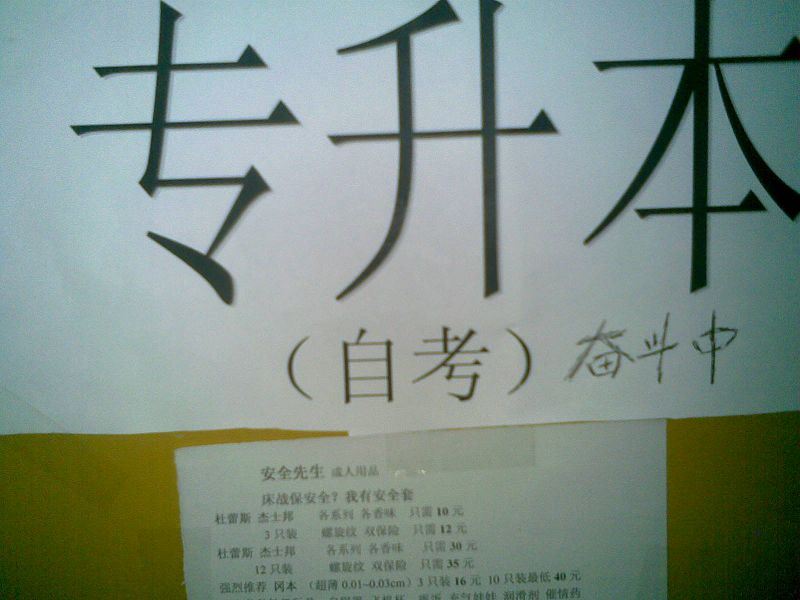 专升本
（自考）奋斗中
安全先生 成人用品
床战保安全？我有安全套
杜蕾斯 杰士邦 各系列 各香味 只需 10 元
3 只装 螺旋纹 双保险 只需 12 元
杜蕾斯 杰士邦 各系列 各香味 只需 30 元
12 只装 螺旋纹 双保险 只需 35 元
强烈推荐 冈本 （超薄 0.01~0.03cm）3 只装 16 元 10 只装最低 40 元
充气娃娃 润滑剂 催情药